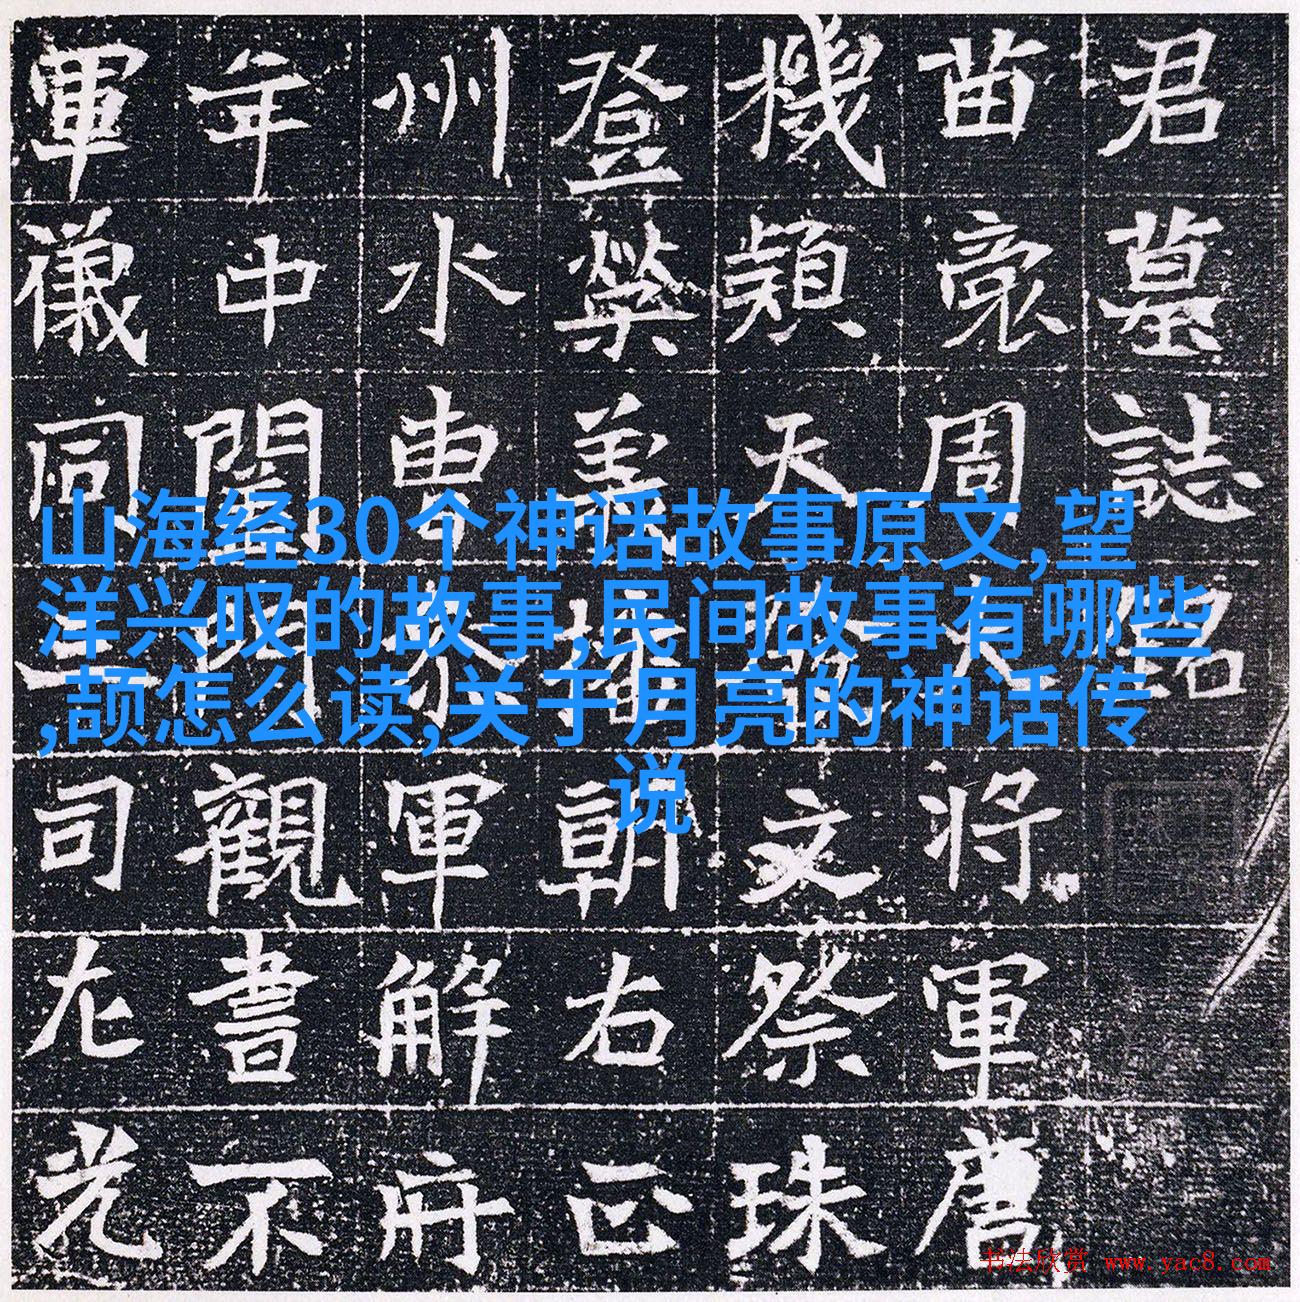 山海经30个神话故事原文,望
洋兴叹的故事,民间故事有哪些
,颉怎么读,关于月亮的神话传
说
君墓誌銘
苗裔周大將軍
機穎天文祭珠
登榮朝右正
州水曹軍解府
年中觀書不
軍儀同三司左光
书法欣赏 www.yac8.com